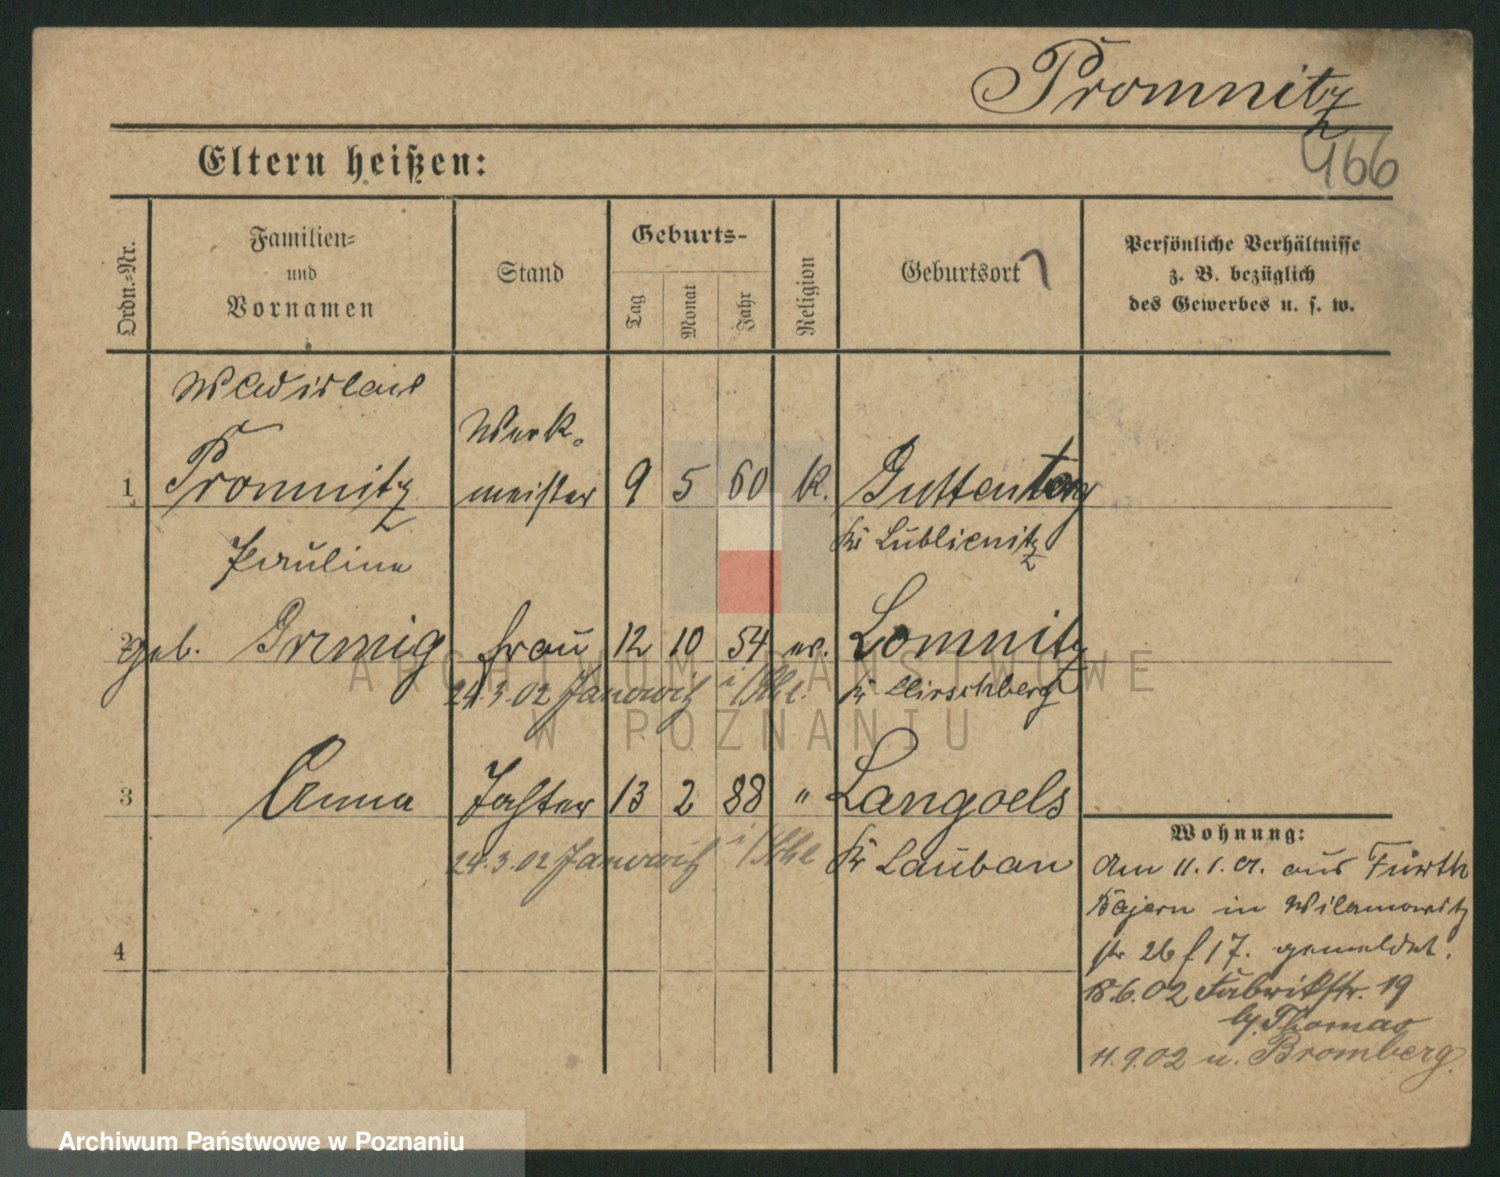 Promnitz
466
Eltern heißen:
Ordn.-Nr.
Familien=
und
Vornamen
Stand
Geburts-
Tag
Monat
Jahr
Religion
Geburtsort
Persönliche Verhältnisse
z. B. bezüglich
des Gewerbes u. s. w.
Wladislaus
Werk-
1 Promnitz meister 9 5 60 k. Guttentag
Kr Lublienitz
Pauline
2 geb. Grennig Frau 12 10 54 ev. Lomnitz
24.3.02 Janowitz Kr Hirschberg
3 Anna Tochter 13 2 88 " Langoels
24.3.02 Janowitz Kr Lauban
4
Wohnung:
Am 11.1.01. aus Fürth
Bayern in Wilamowitz
str 26 f 17. gemeldet.
18.6.02 Fabrikstr. 19
by. Thomas
11.9.02 n. Bromberg.
ARCHIWUM PAŃSTWOWE
W POZNANIU
Archiwum Państwowe w Poznaniu